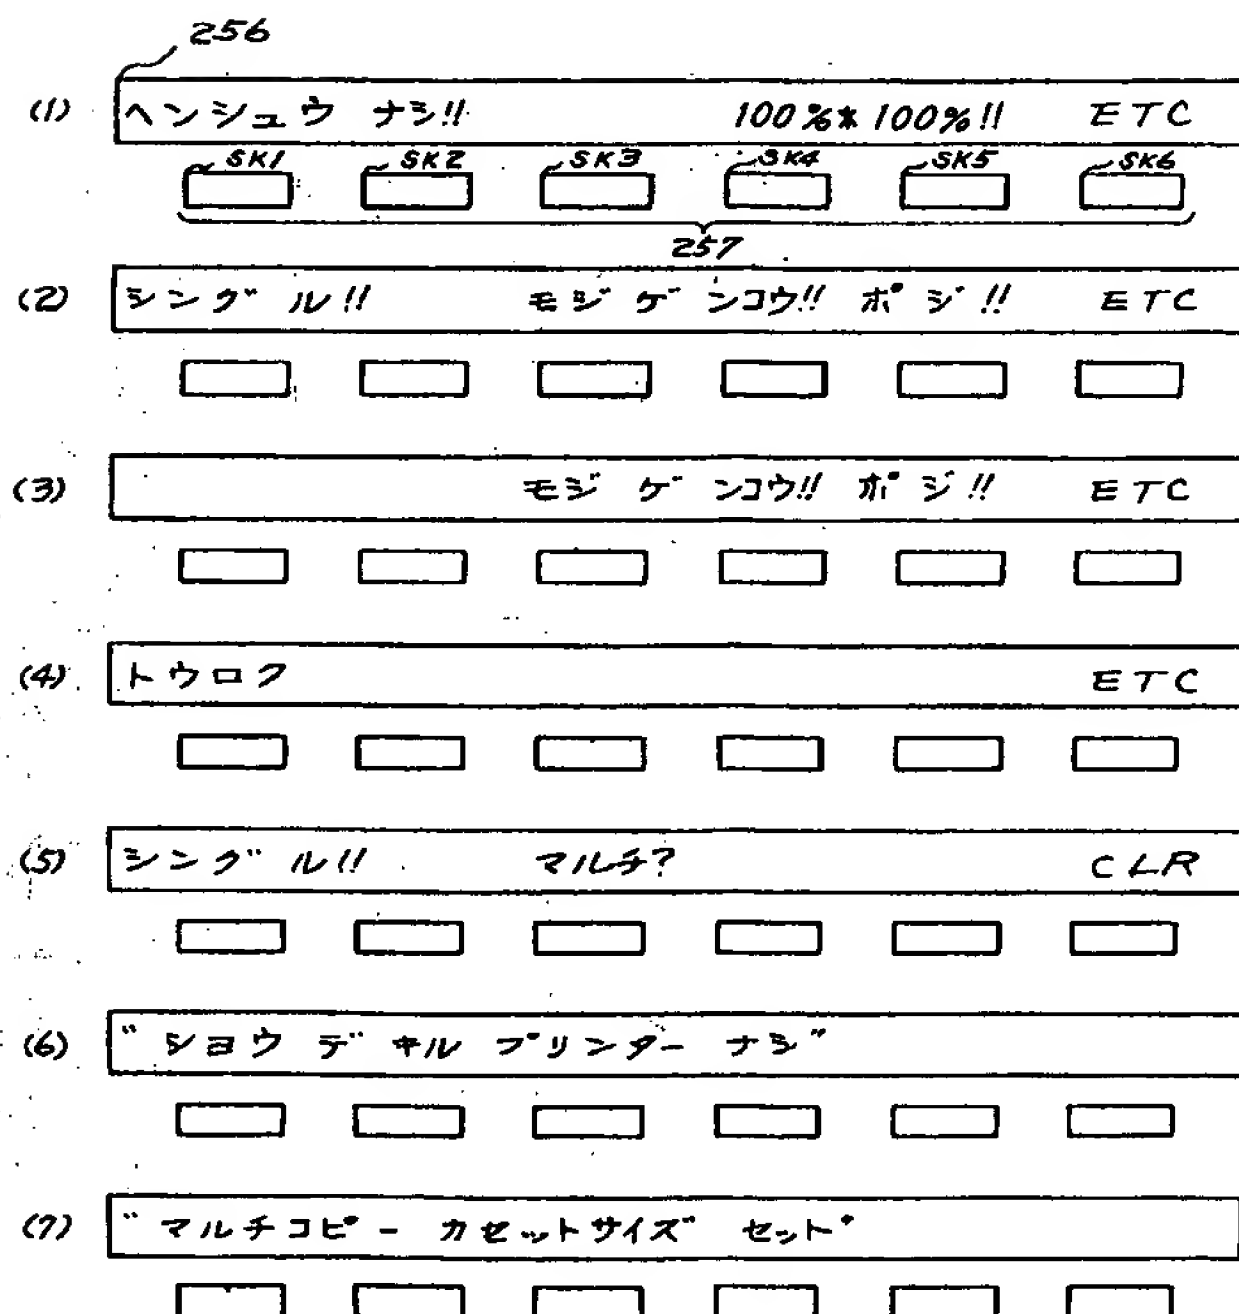 256
(1) ヘンシュウ ナシ!! 100%*100%!! ETC
SK1 SK2 SK3 SK4 SK5 SK6
257
(2) シングル!! モジゲンコウ!! ポジ!! ETC
(3) モジゲンコウ!! ポジ!! ETC
(4) トウロク ETC
(5) シングル!! マルチ? CLR
(6) "ショウデキル プリンター ナシ"
(7) "マルチコピー カセットサイズ セット"